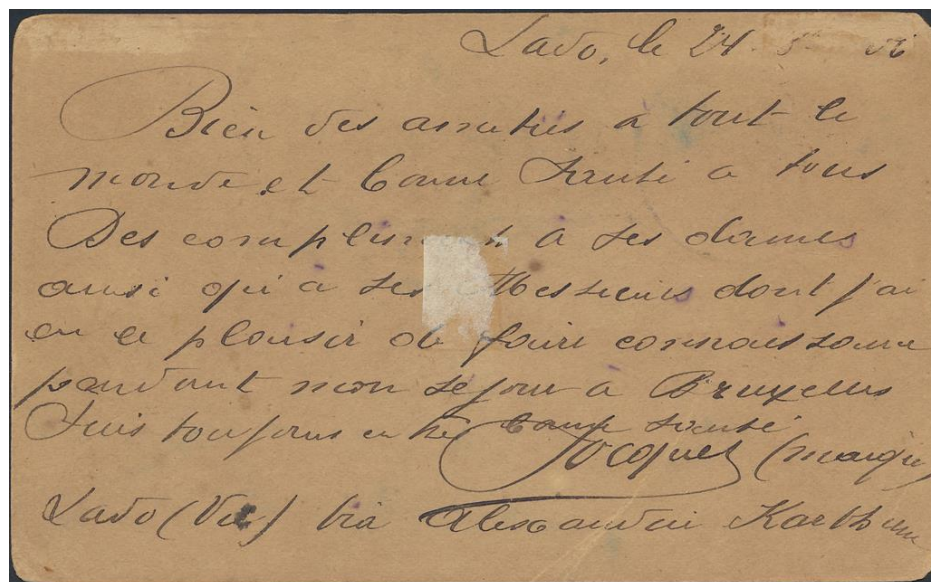 Lado, le 24 06
Bien des amitiés à tout le
monde et bonne Santé a tous
Des complim a ses dames
ausi qu'a ses Messieurs dont j'ai
eu le plaisir de faire connaissance
pendant mon sejour a Bruxelles
Suis toujours en bonne santé
Jocquet
Lado (Uélé) via Alexandrie Karthoum